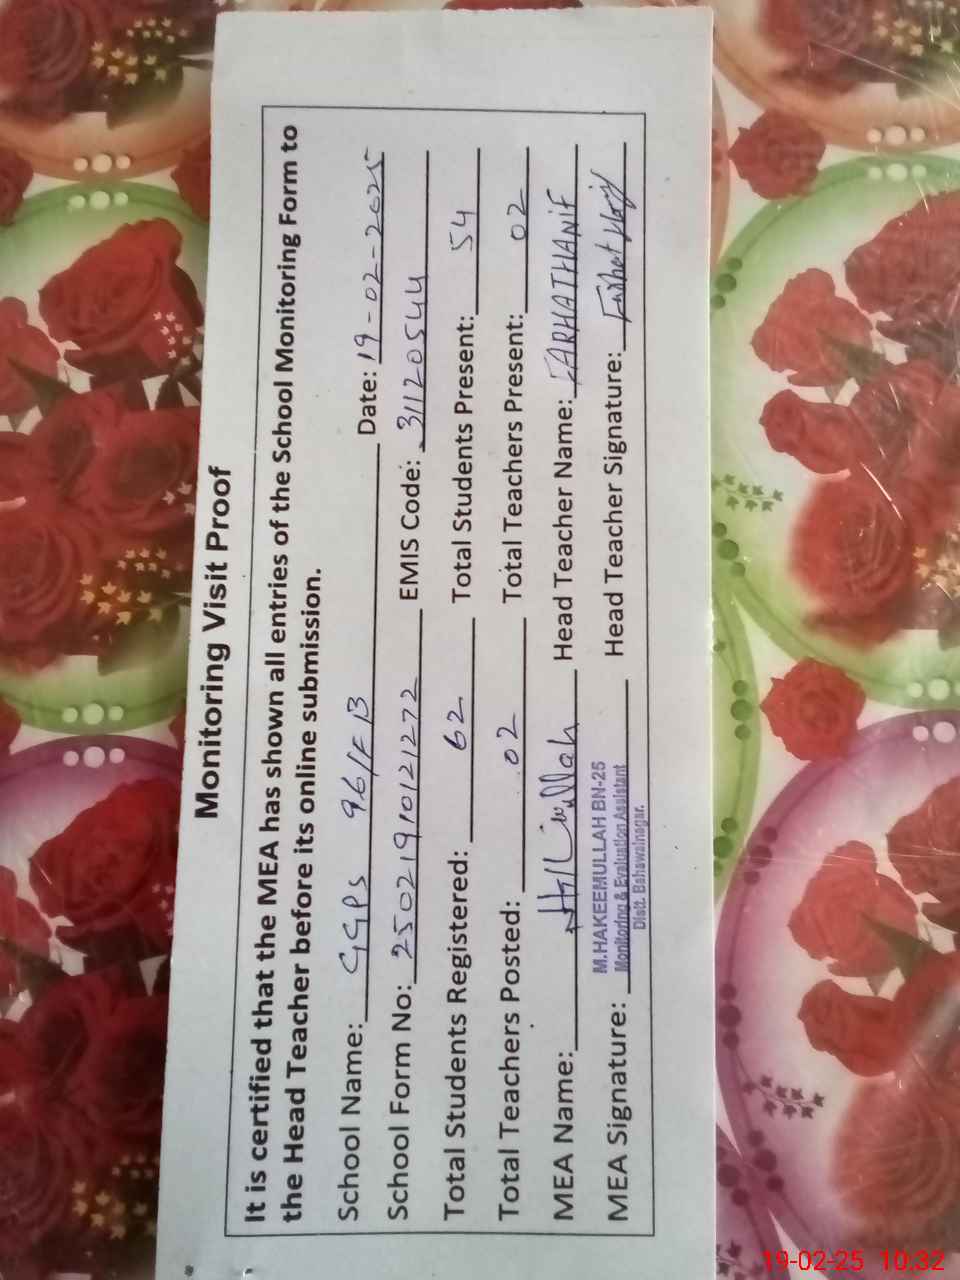 Monitoring Visit Proof
It is certified that the MEA has shown all entries of the School Monitoring Form to
the Head Teacher before its online submission.
School Name: GGPS 96/F B Date: 19-02-2025
School Form No: 25021910121272 EMIS Code: 31120544
Total Students Registered: 62 Total Students Present: 54
Total Teachers Posted: 02 Total Teachers Present: 02
MEA Name: Head Teacher Name: FARHATHANIF
M.HAKEEMULLAH BN-25
MEA Signature: Monitoring & Evaluation Assistant Head Teacher Signature: Farhat Hanif
Distt. Bahawalnagar.
19-02-25 10:32